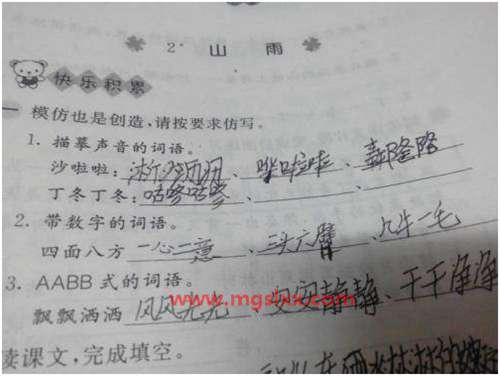 2* 山 雨
快乐积累
一 模仿也是创造,请按要求仿写。
1. 描摹声音的词语。
沙啦啦: 、哗啦啦、轰隆隆
丁冬丁冬:咕咚咕咚、
2. 带数字的词语。
四面八方 一心二意、三头六臂、九牛一毛
3. AABB 式的词语。
www.mgslxx.com
飘飘洒洒 风风光光、安安静静、干干净净
读课文,完成填空。